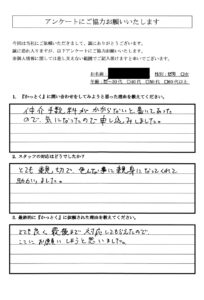 アンケートにご協力お願いいたします
今回は当社にご依頼いただきまして、誠にありがとうございます。
誠に恐れ入りますが、以下アンケートにご協力お願いいたします。
お名前
性別：男性 女
年齢：
1．『かっとく』に問い合わせをしてみようと思った理由を教えてください。
仲介手数料がかからないと書いてあった
ので、気になったので申し込みしました。
2．スタッフの対応はどうでしたか？
とても親切で、色んな事に親身になってくれて
助かりました。
3．最終的に『かっとく』に依頼された理由を教えてください。
とても良く最後まで対応してもらえたので、
ここにお願いしようと思いました。